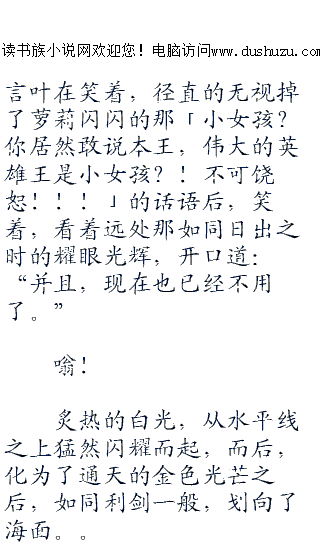 读书族小说网欢迎您！电脑访问www.dushuzu.com
言叶在笑着，径直的无视掉
了萝莉闪闪的那「小女孩？
你居然敢说本王，伟大的英
雄王是小女孩？！不可饶
恕！！！」的话语后，笑
着，看着远处那如同日出之
时的耀眼光辉，开口道：
“并且，现在也已经不用
了。”
嗡！
炙热的白光，从水平线
之上猛然闪耀而起，而后，
化为了通天的金色光芒之
后，如同利剑一般，划向了
海面。。